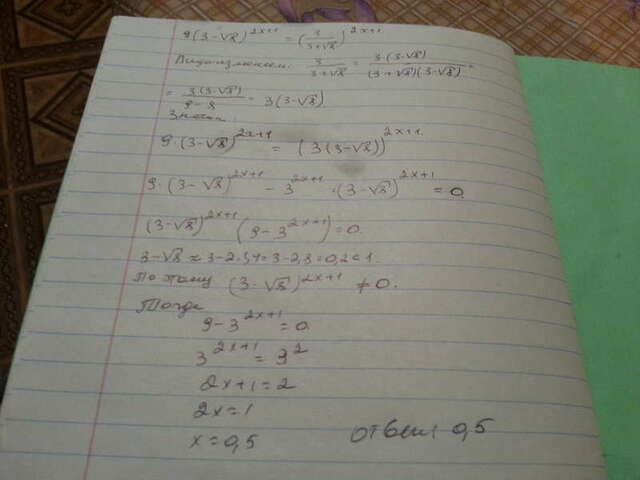 9(3-√8)^{2x+1} = (3/(3+√8))^{2x+1}
Видоизменим: 3/(3+√8) = 3·(3-√8)/((3+√8)(3-√8)) =
= 3(3-√8)/(9-8) = 3(3-√8).
Значит:
9·(3-√8)^{2x+1} = (3(3-√8))^{2x+1}
9·(3-√8)^{2x+1} - 3^{2x+1}·(3-√8)^{2x+1} = 0.
(3-√8)^{2x+1} (9-3^{2x+1}) = 0.
3-√8 ≈ 3-2·1,4 = 3-2,8 = 0,2 < 1.
Потому (3-√8)^{2x+1} ≠ 0.
Тогда
9-3^{2x+1} = 0.
3^{2x+1} = 3^2
2x+1=2
2x=1
x=0,5 ответ 0,5